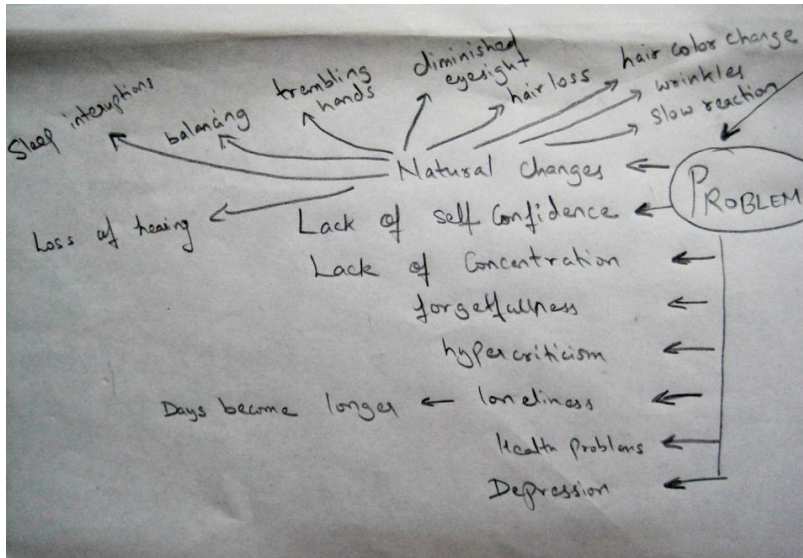 Sleep interuptions
balancing
trembling
hands
diminished
eyesight
hair loss
hair color change
wrinkles
slow reaction
Natural Changes
PROBLEM
Loss of hearing
Lack of self Confidence
Lack of Concentration
forgetfullness
hypercriticism
Days become longer ← loneliness
Health Problems
Depression